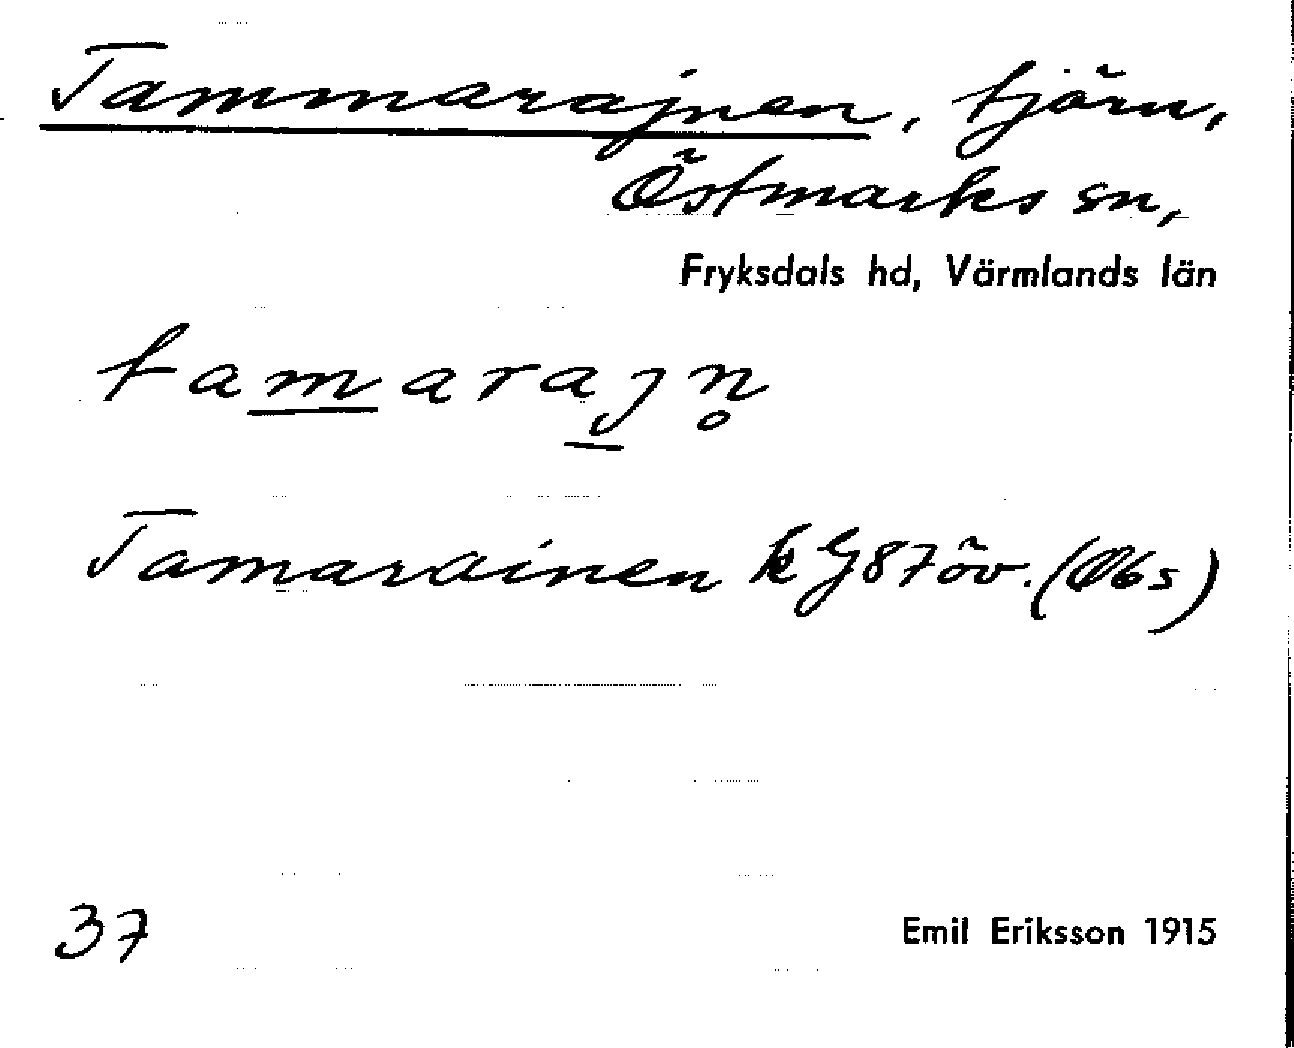 Tammarajnen, tjärn,
Östmarks sn,
Fryksdals hd, Värmlands län
tam̲araȷ̲n̥
Tamarainen k G87öv. (Obs)
37
Emil Eriksson 1915